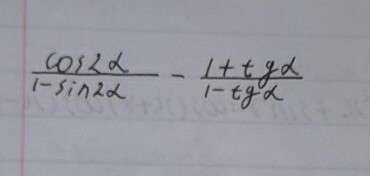 cos2α/(1-sin2α) - (1+tgα)/(1-tgα)